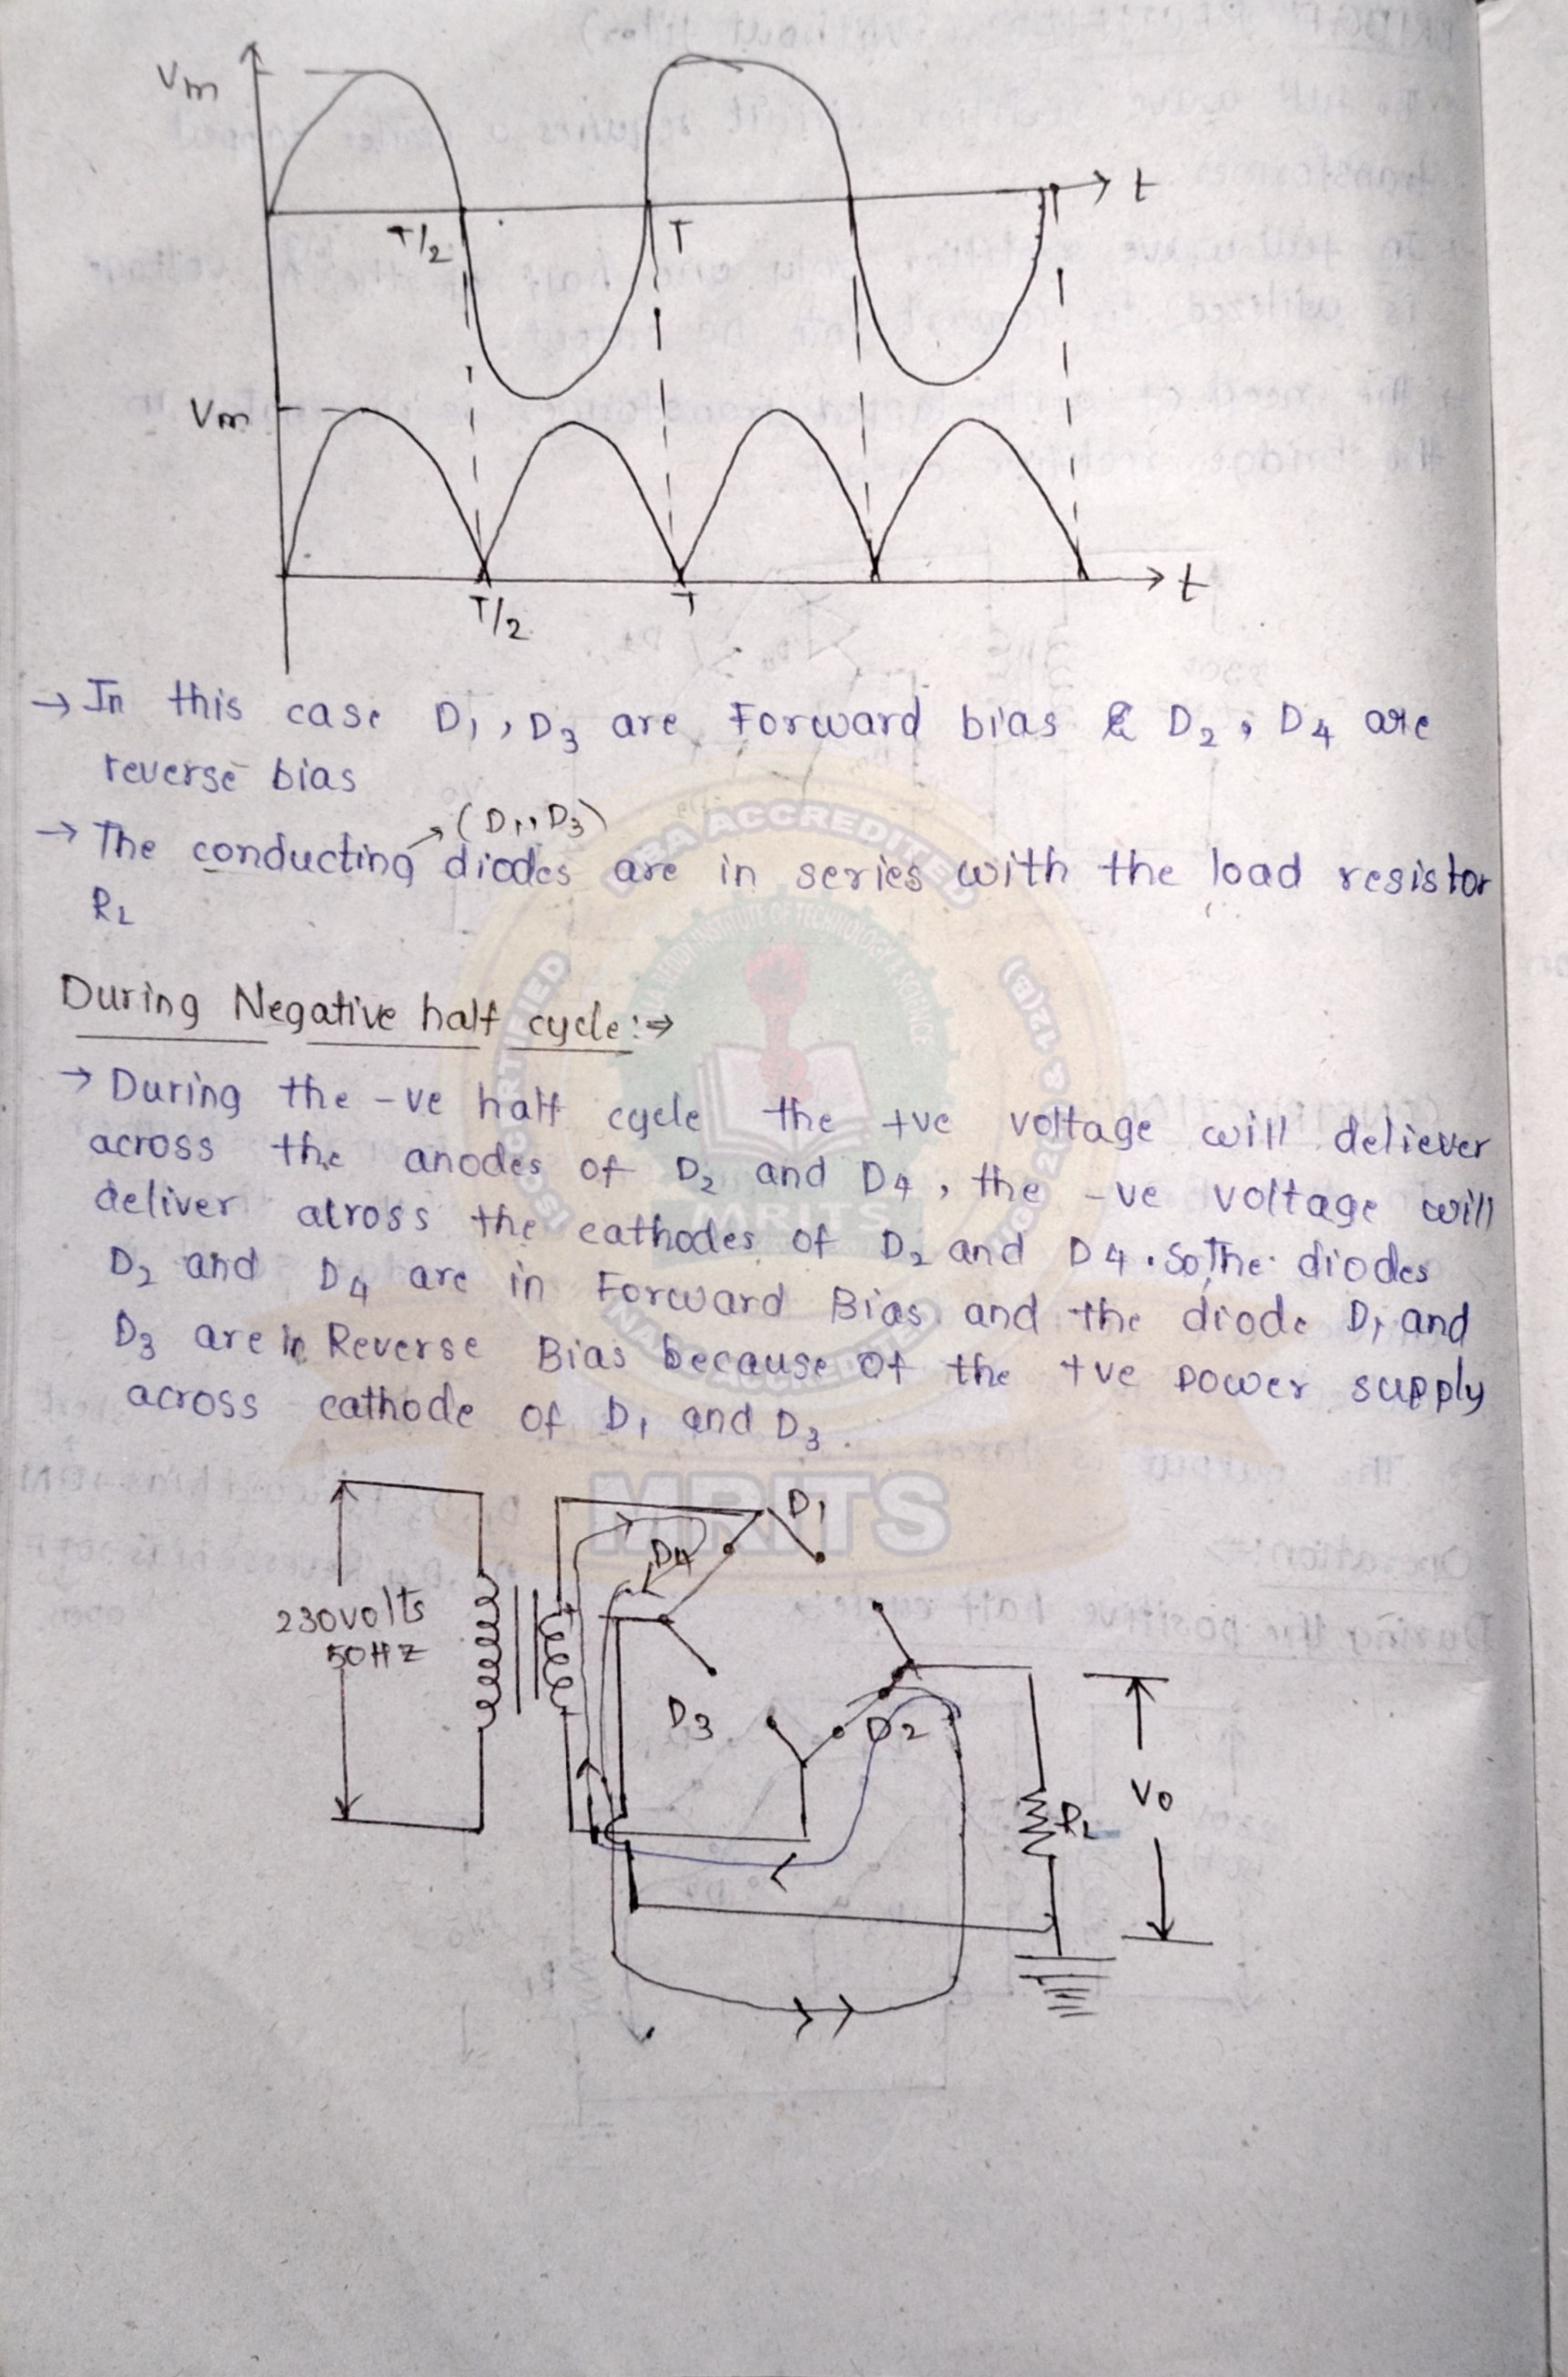 Vm
t
T/2
T
Vm
t
T/2
T
→ In this case D1, D3 are Forward bias & D2, D4 are
reverse bias
(D1, D3)
→ The conducting diodes are in series with the load resistor
RL
During Negative half cycle:⇒
→ During the -ve half cycle the +ve voltage will deliever
across the anodes of D2 and D4, the -ve voltage will
deliver atross the cathodes of D2 and D4. So, The diodes
D2 and D4 are in Forward Bias and the diode D1 and
D3 are in Reverse Bias because of the +ve power supply
across cathode of D1 and D3.
MRITS
D1
D4
230volts
50HZ
D3
D2
RL
Vo
NBA ACCREDITED
MRITS
NAAC ACCREDITED